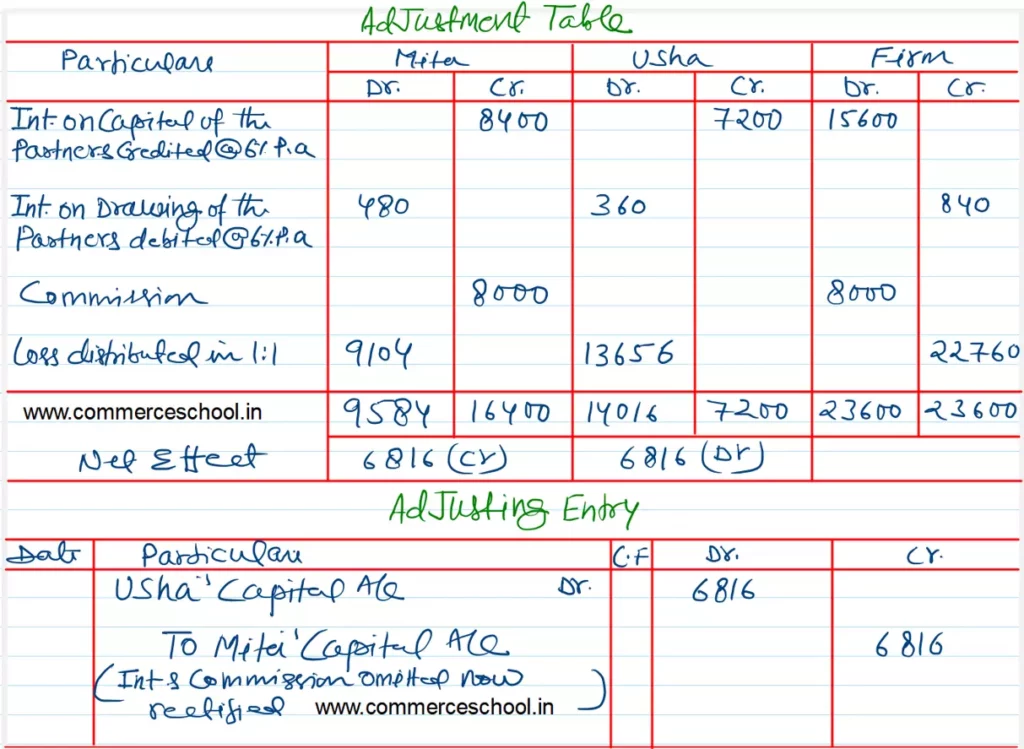 AdJustment Table
Particulars Mita Usha Firm
Dr. Cr. Dr. Cr. Dr. Cr.
Int. on Capital of the 8400 7200 15600
Partners Credited @ 6% P.a
Int. on Drawing of the 480 360 840
Partners debited @ 6% P.a
Commission 8000 8000
Loss distributed in 1:1 9104 13656 22760
www.commerceschool.in 9584 16400 14016 7200 23600 23600
Net Effect 6816 (Cr) 6816 (Dr)
AdJusting Entry
Date Particulars C.F Dr. Cr.
Usha's Capital A/c Dr. 6816
To Mita's Capital A/c 6816
(Int & Commission omitted now
rectified www.commerceschool.in )